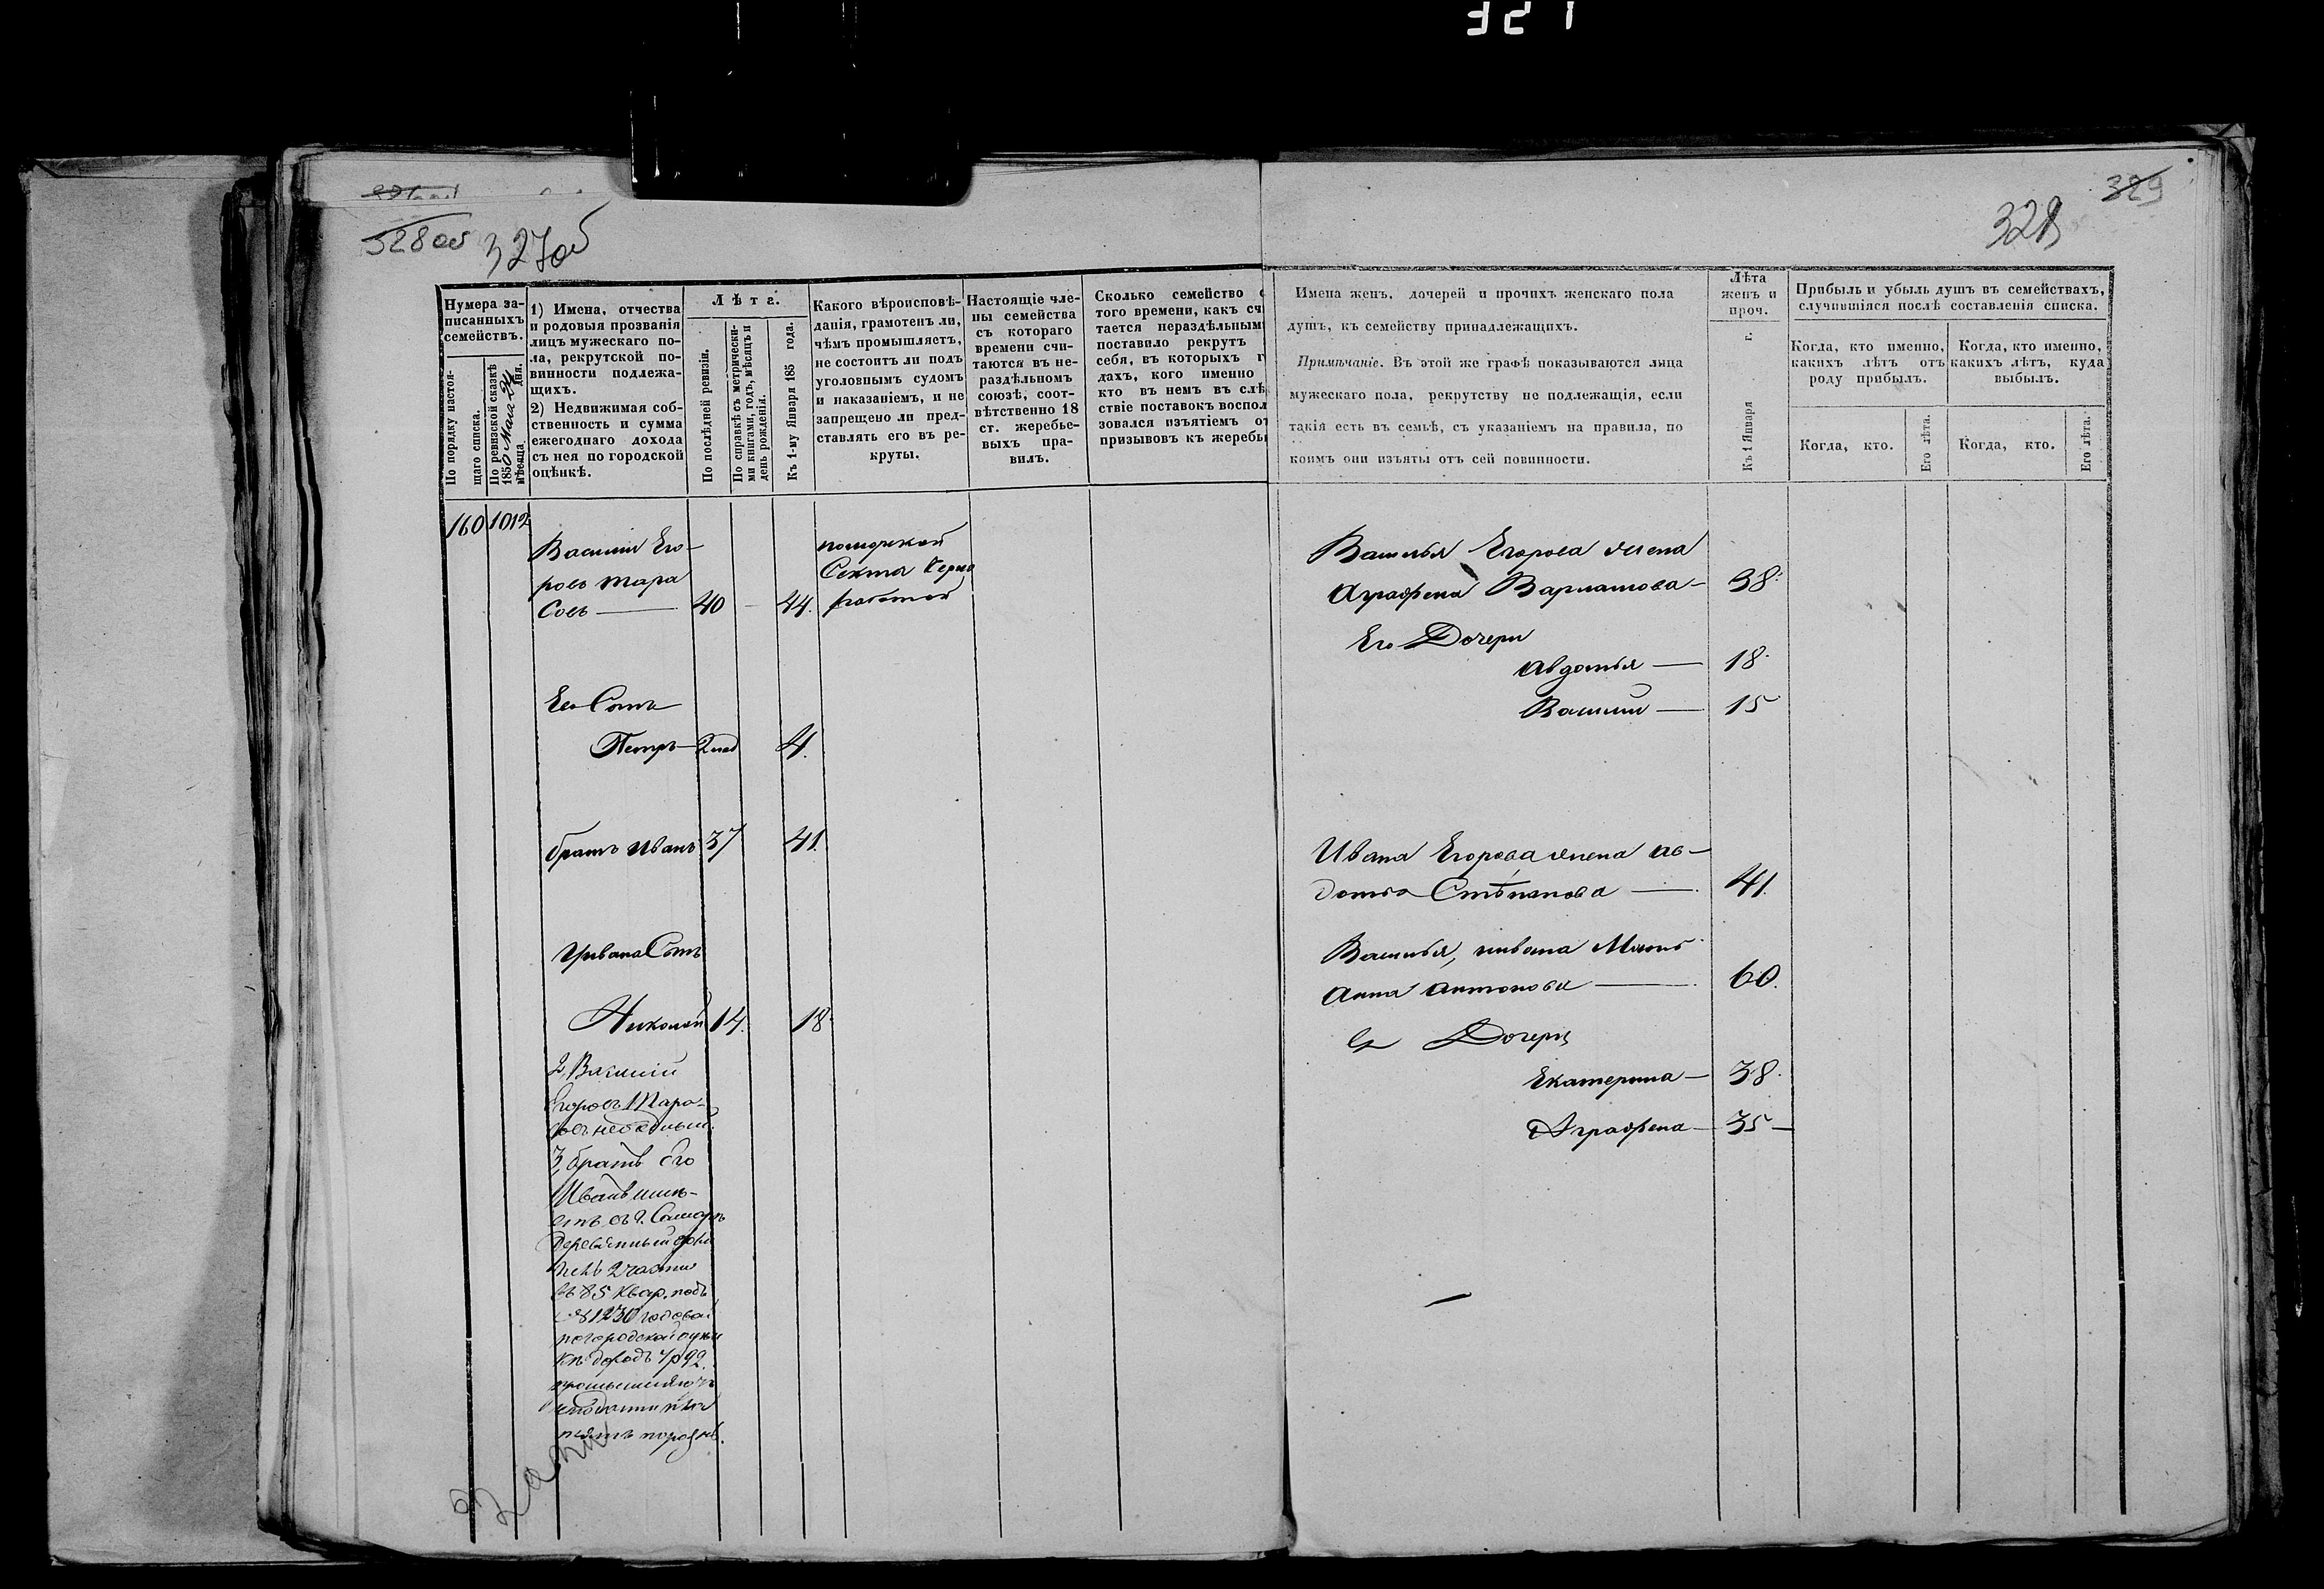 321
328 об
327 об
Нумера за-
писанныхъ
семействъ.
По порядку настоя-
щаго списка.
По ревизской сказкѣ
1850 Мая 24 дня.
мѣсяца
1) Имена, отчества
и родовыя прозванія
лицъ мужескаго по-
ла, рекрутской по-
винности подлежа-
щихъ.
2) Недвижимая соб-
ственность и сумма
ежегоднаго дохода
съ нея по городской
оцѣнкѣ.
Лѣта.
По послѣдней ревизіи.
По справкѣ съ метрически-
ми книгами, годъ, мѣсяцъ и
день рожденія.
Къ 1-му Января 185 года.
Какого вѣроисповѣ-
данія, грамотенъ ли,
чѣмъ промышляетъ,
не состоитъ ли подъ
уголовнымъ судомъ
и наказаніемъ, и не
запрещено ли пред-
ставлять его въ ре-
круты.
Настоящіе чле-
ны семейства
съ котораго
времени счи-
таются въ не-
раздѣльномъ
союзѣ, соот-
вѣтственно 18
ст. жеребье-
выхъ пра-
вилъ.
Сколько семейство с
того времени, какъ сч
тается нераздѣльным
поставило рекрутъ
себя, въ которыхъ г
дахъ, кого именно
кто въ немъ въ слѣ
ствіе поставокъ воспол
зовался изъятіемъ от
призывовъ къ жеребь
160 1012
Василій Его-
ровъ Тара
совъ — 40 — 44.
поморской
Секты черно
работой
Его Сынъ
Петръ — 2 нед 4.
братъ Иванъ 37 41.
У Ивана Сынъ
Николай 14. 18.
2, Василій
Егоровъ Тара-
совъ
3, братъ его
Иванъ имѣ-
етъ въ г. Самарѣ
Деревянный домъ
2 части
въ 85 квар. подъ
№ 1230 годовой
по городской оцѣн
кѣ доходъ 4 р 92.
329
328
Имена женъ, дочерей и прочихъ женскаго пола
душъ, къ семейству принадлежащихъ.
Примѣчаніе. Въ этой же графѣ показываются лица
мужескаго пола, рекрутству не подлежащія, если
такія есть въ семьѣ, съ указаніемъ на правила, по
коимъ они изъяты отъ сей повинности.
Лѣта
женъ и
проч.
Къ 1 Января г.
Прибыль и убыль душъ въ семействахъ,
случившіяся послѣ составленія списка.
Когда, кто именно,
какихъ лѣтъ отъ
роду прибылъ.
Когда, кто именно,
какихъ лѣтъ, куда
выбылъ.
Когда, кто.
Его лѣта.
Когда, кто.
Его лѣта.
Василья Егорова жена
Аграфена Варламова — 38.
Его Дочери
Авдотья — 18.
Василии — 15
Ивана Егорова жена Ав-
дотья Степанова — 41.
Василья, и Ивана Мать
Анна Антонова — 60.
Ея Дочери
Екатерина — 38.
Аграфена — 35 —